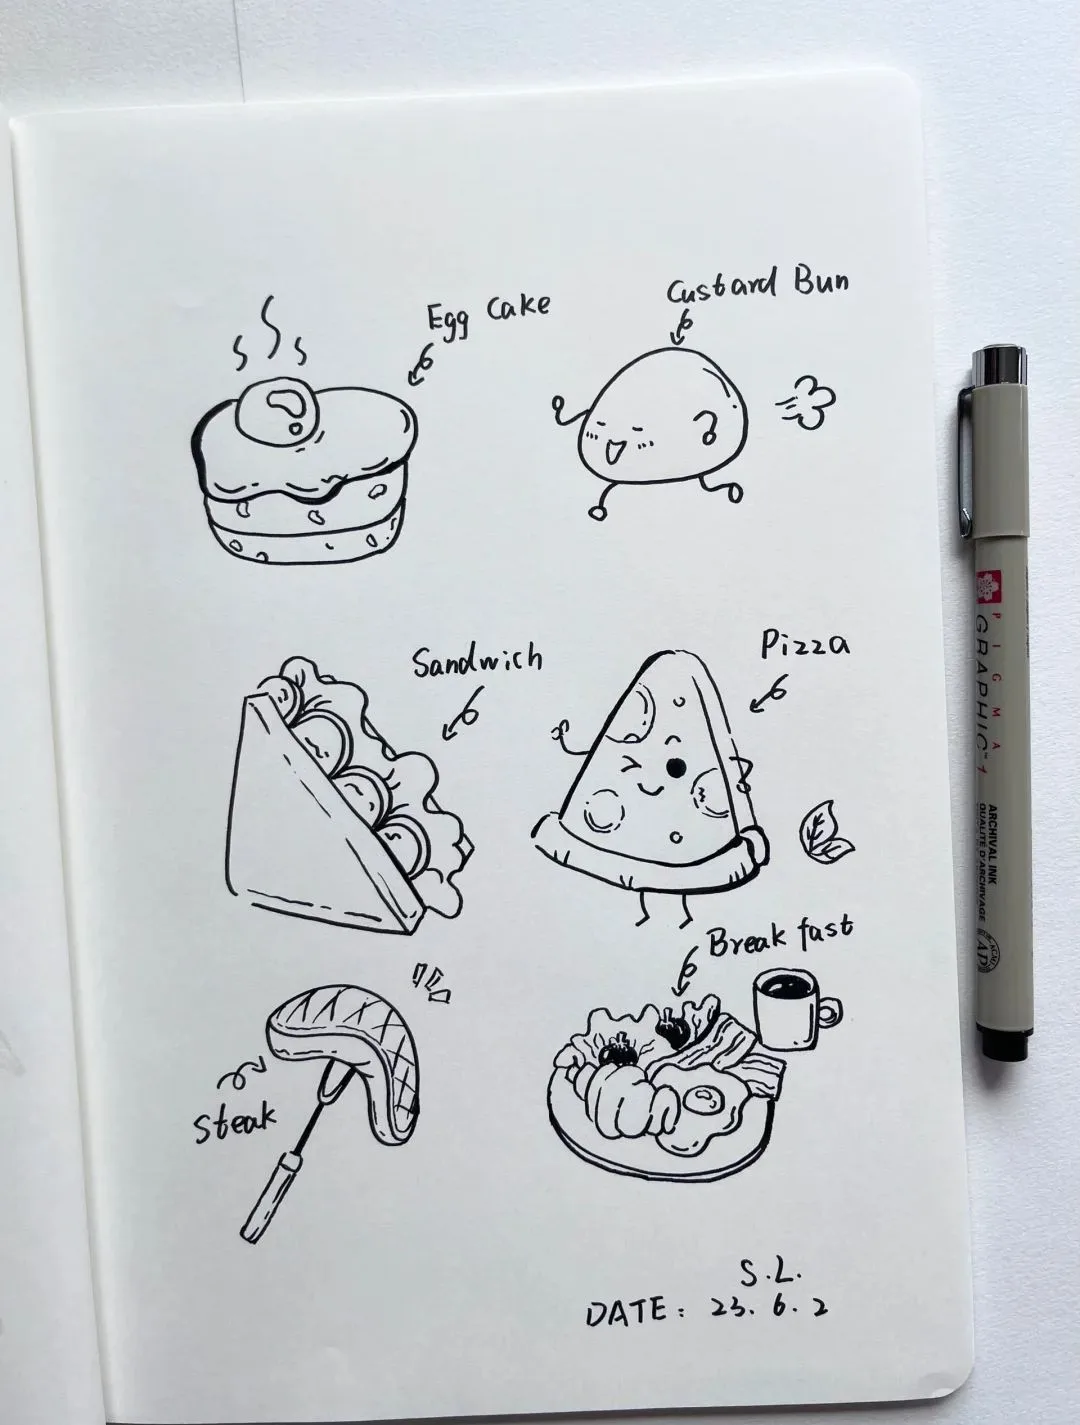 Egg Cake
Custard Bun
Sandwich
Pizza
Break fast
steak
S.L.
DATE: 23.6.2
PIGMA
GRAPHIC™ 1
ARCHIVAL INK
QUALITÉ D'ARCHIVAGE
AP